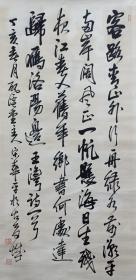 客路青山外行舟绿水前潮平
两岸阔風正一帆懸海日生残
夜江春入舊年鄉書何處達
歸雁洛陽邊 王灣詩一首
丁亥春月